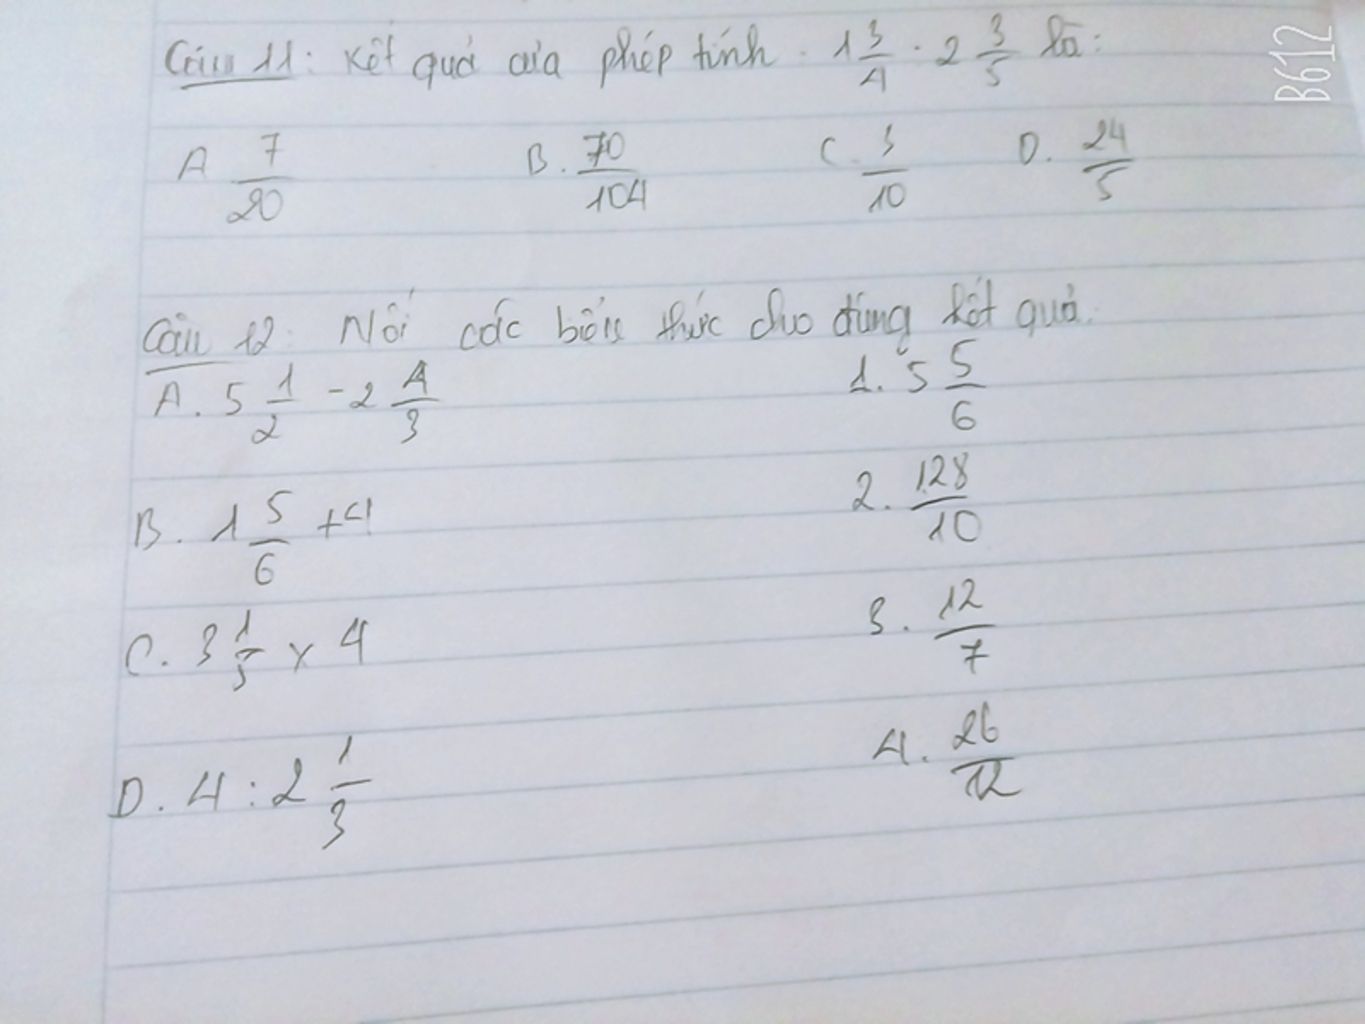 Câu 11: Kết quả của phép tính . 1 3/4 . 2 3/5 là:
A 7/20 B. 70/104 C. 3/10 D. 24/5
Câu 12: Nối các biểu thức cho đúng kết quả.
A. 5 1/2 - 2 4/3 1. 5 5/6
B. 1 5/6 + 4 2. 128/10
C. 3 1/5 x 4 3. 12/7
D. 4 : 2 1/3 4. 26/12
B612